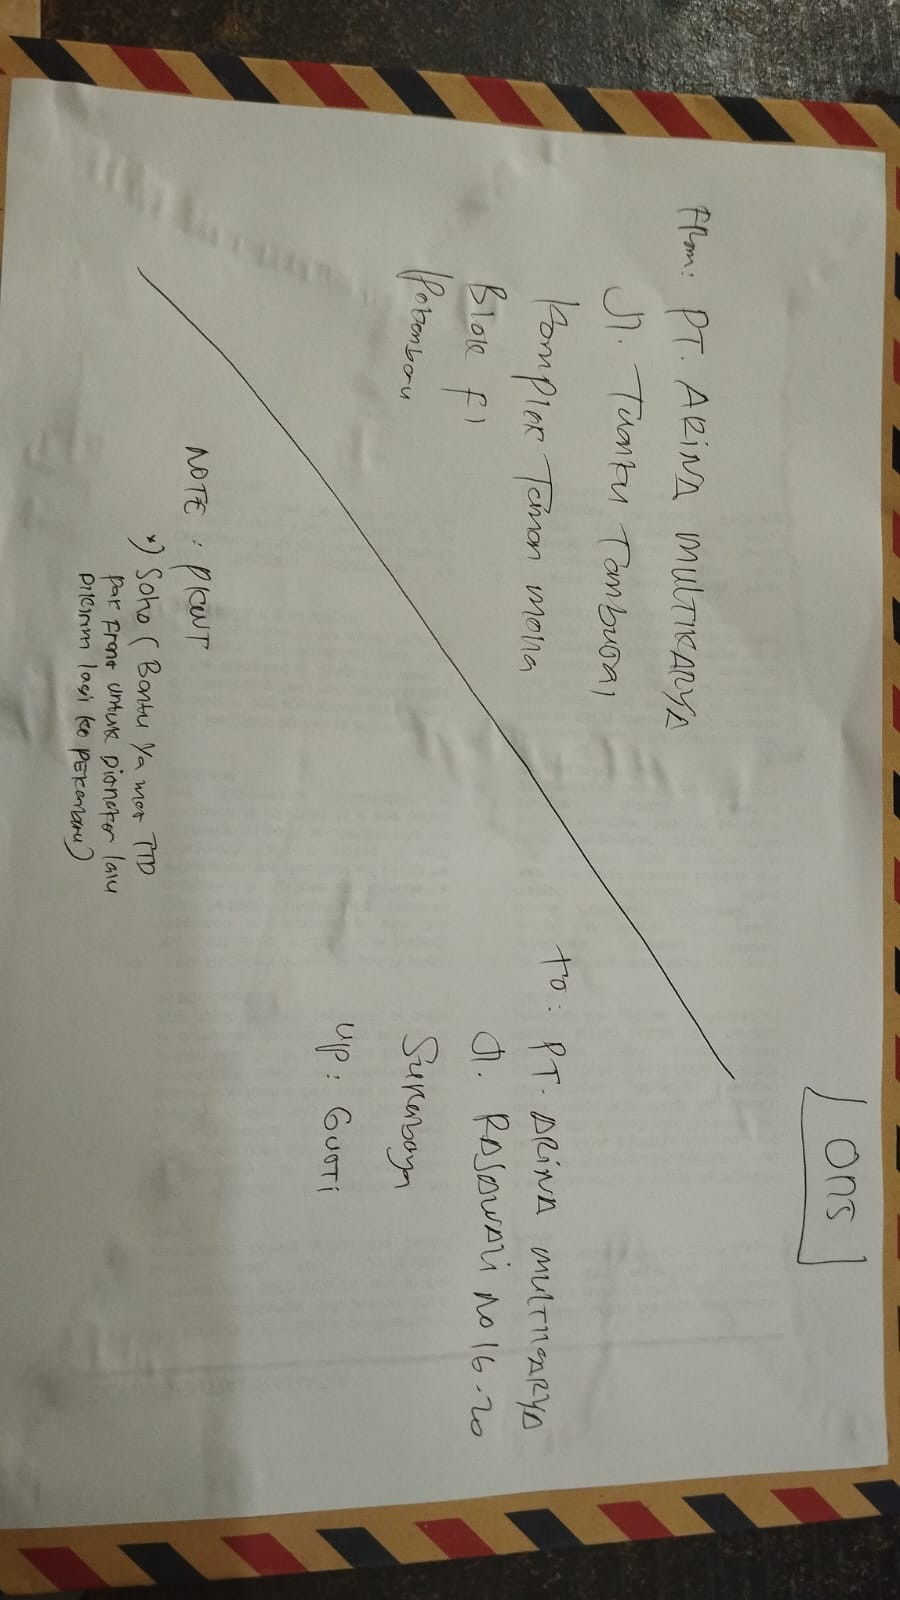 ONS
From: PT. ARINA MULTIKARYA
Jl. Tuanku Tambusai
Komplek Taman Mella
Blok F1
Pekanbaru
To: PT. ARINA MULTIKARYA
Jl. RAJAWALI NO 16-20
Surabaya
UP: Gusti
NOTE: PKWT
*) Soho (Bantu ya mer TTD
pak Frans untuk Direktor lalu
Dikirim lagi ke Pekanbaru)